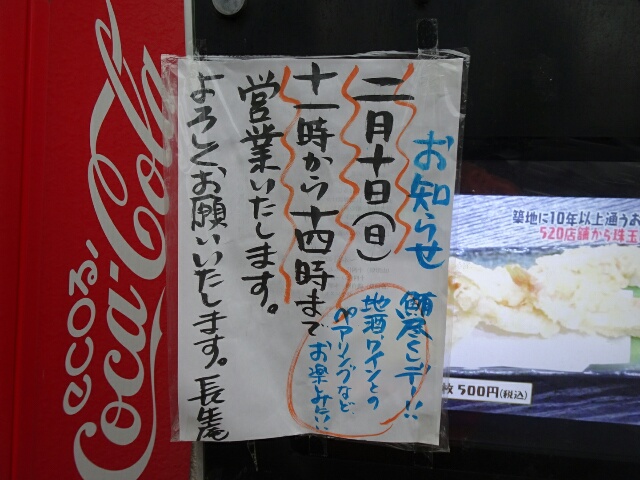 お知らせ
二月十日(日)
十一時から十四時まで
営業いたします。
よろしくお願いいたします。長生庵
鮪尽くしデー!!
地酒、ワインとの
ペアリングなど
お楽しみ下さい
ecoる/
Coca-Cola
築地に10年以上通うお
520店舗から珠玉
枚500円(税込)